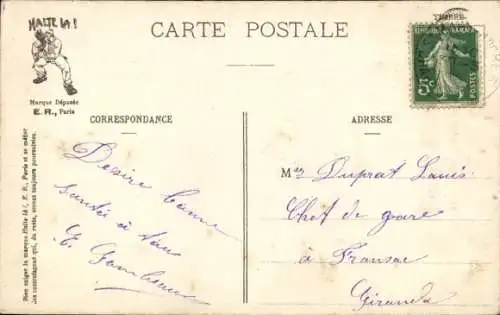 HALTE LÀ !
CARTE POSTALE
TIMBRE
RÉPUBLIQUE FRANÇAISE
5c
POSTES
Marque Déposée
E. R., Paris
CORRESPONDANCE
ADRESSE
Bien exiger la marque Halte là !, E. R., Paris et se méfier
des contrefaçons qui, du reste, seront toujours poursuivies.
Desire bonne
santé à tous
E.
Mr Duprat Louis
Chef de gare
à Fransac
Gironde